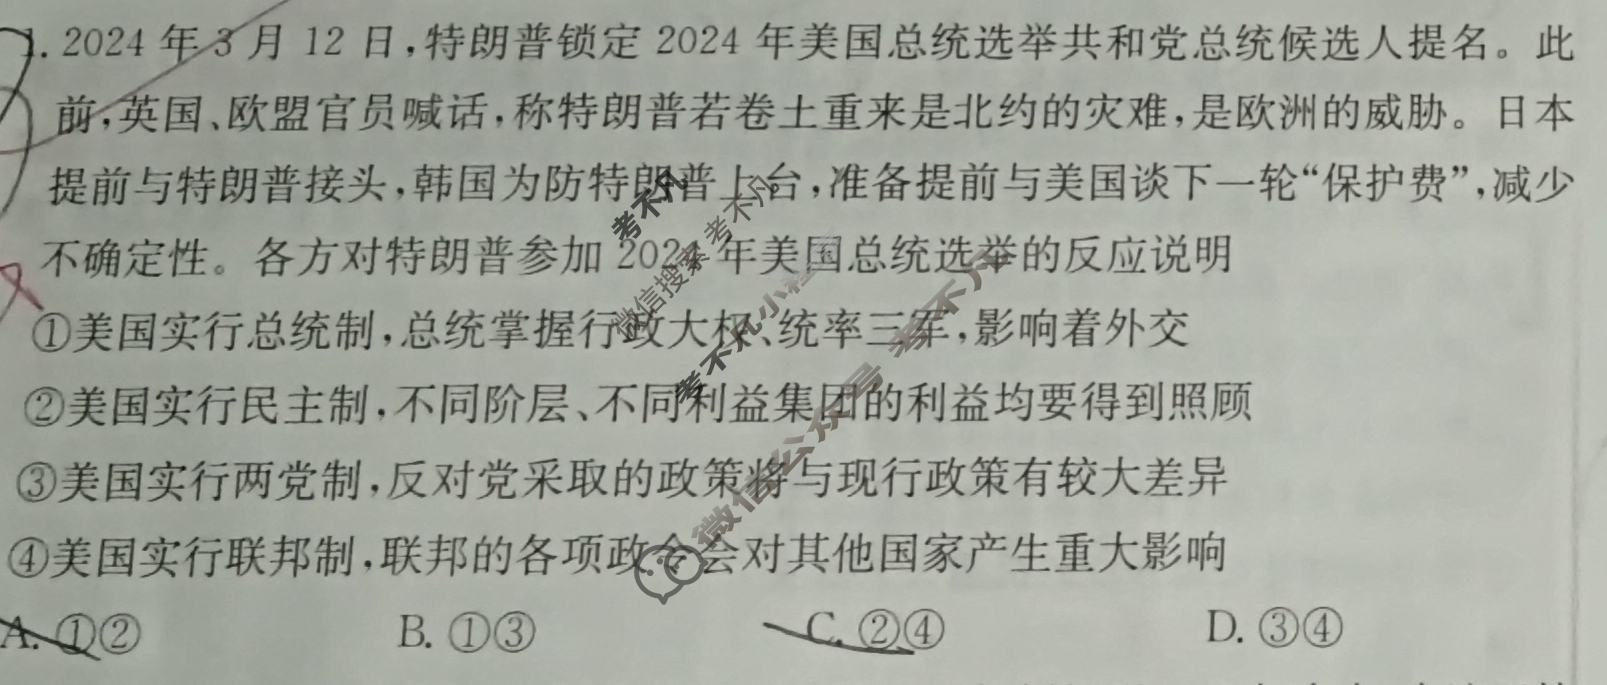 1. 2024 年 3 月 12 日,特朗普锁定 2024 年美国总统选举共和党总统候选人提名。此
前,英国、欧盟官员喊话,称特朗普若卷土重来是北约的灾难,是欧洲的威胁。日本
提前与特朗普接头,韩国为防特朗普上台,准备提前与美国谈下一轮“保护费”,减少
不确定性。各方对特朗普参加 2024 年美国总统选举的反应说明
①美国实行总统制,总统掌握行政大权、统率三军,影响着外交
②美国实行民主制,不同阶层、不同利益集团的利益均要得到照顾
③美国实行两党制,反对党采取的政策将与现行政策有较大差异
④美国实行联邦制,联邦的各项政令会对其他国家产生重大影响
A. ①② B. ①③ C. ②④ D. ③④
考不凡
微信搜索 考不凡
考不凡小程序
微信公众号 考不凡